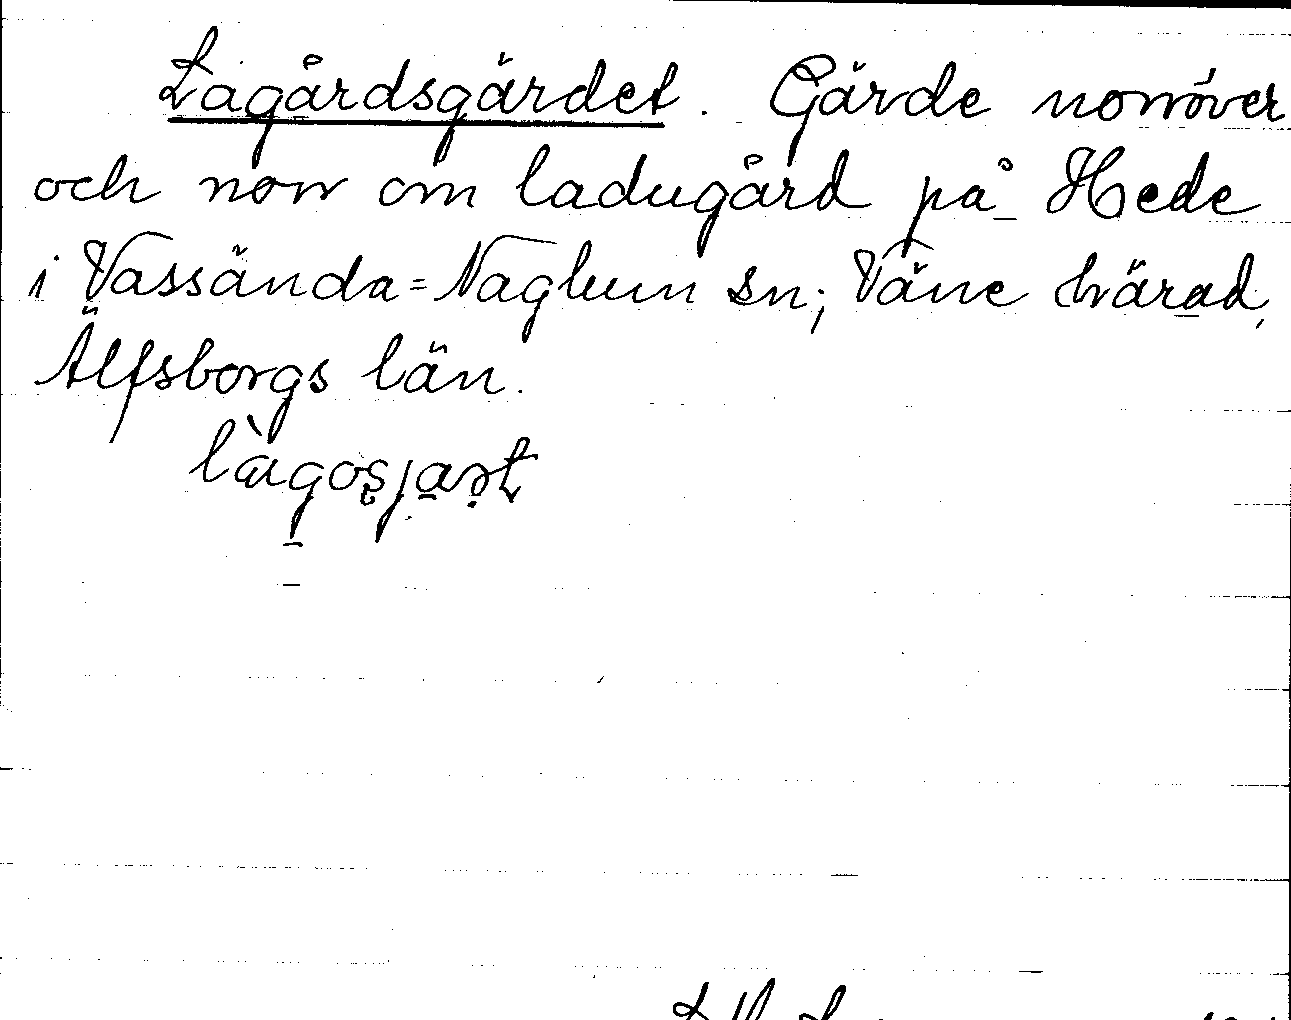 Lagårdsgärdet. Gärde norröver
och norr om ladugård på Hede
i Vassända=Naglum sn; Väne härad,
Älfsborgs län.